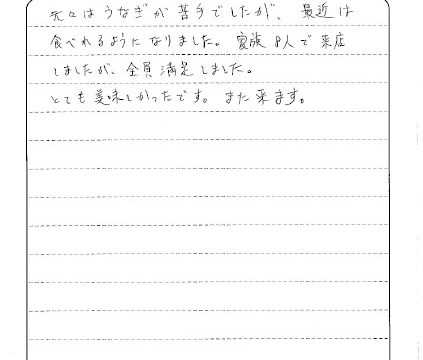 元々はうなぎが苦手でしたが、最近は
食べれるようになりました。家族8人で来店
しましたが、全員満足しました。
とても美味しかったです。また来ます。